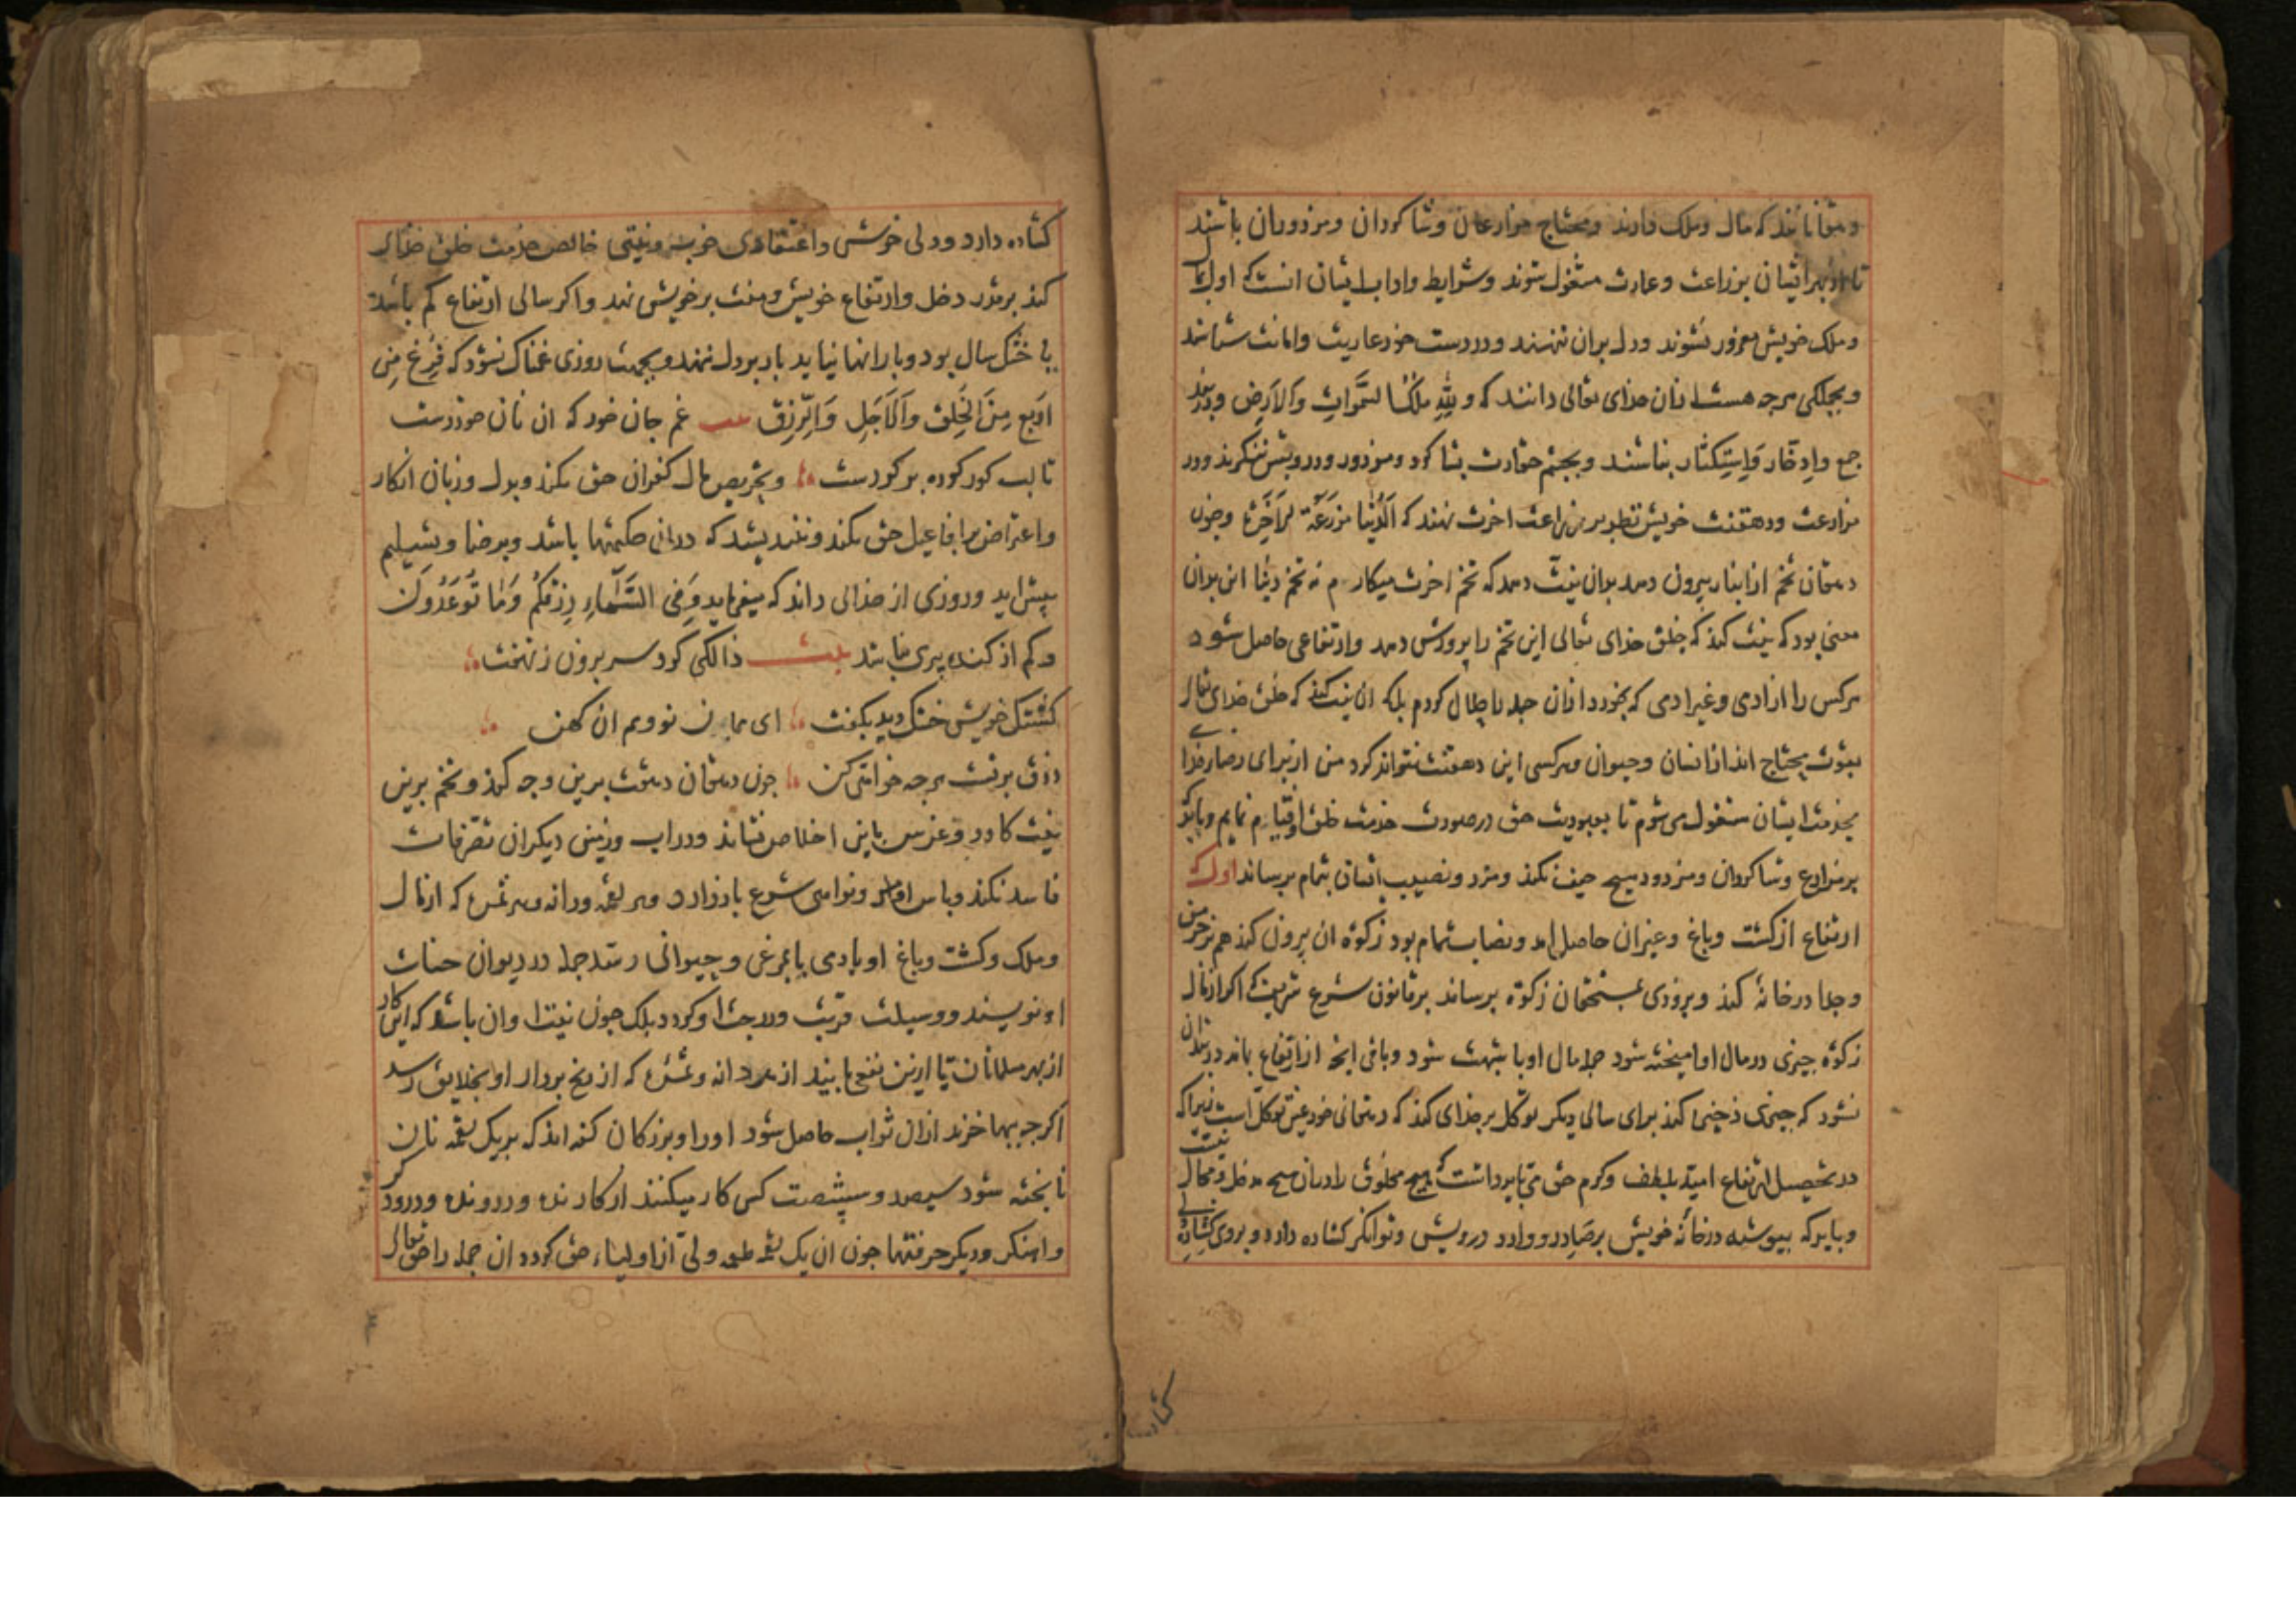 دهقانانند که مال و ملک دارند و محتاج مزارعان و شاکردان و مزدوران باشند
تا از بهر ایشان بزراعت و عمارت مشغول شوند و شرایط و اداب ایشان انست که اول بمال
و ملک خویش مغرور نشوند و دل بران ننهند و در دست خود عاریت و امانت شناسند
و بجملکی هرجه هست ازان خدای تعالی دانند که ولله ملک السموات والارض و در بند
جمع و ادخار و استکثار نباشند و بجشم حقارت بشاکرد و مزدور و درویش ننکرند و در
مزارعت و دهقنت خویش نظر بر زراعت اخرت نهند که الدنیا مزرعة الاخرة و جون
دهقان تخم از انبار بیرون دهد بدان نیت دهد که تخم اخرت میکارم نه تخم دنیا این بدان
معنی بود که نیت کند که خلق خدای تعالی این تخم را پرورش دهد و ارتفاعی حاصل شود
هرکس را از ادمی و غیر ادمی که بخورد ازان جمله را حلال کردم بلکه ان نیت کند که خلق خدای تعالی
بقوت محتاج اند از انسان و حیوان و هرکسی این دهقنت نتواند کرد من از برای رضای خدا
بخدمت ایشان مشغول می شوم تا بعبودیت حق در صورت خدمت خلق او قیام نمایم و باید که
بر مزارع و شاکردان و مزدور هیج حیف نکند و مزد و نصیب ایشان بتمام برساند اول که
ارتفاع از کشت و باغ و غیران حاصل امد و نصاب تمام بود زکوة ان بیرون کند هم بر خرمن
و جدا در خانه کند و بزودی بمستحقان زکوة برساند بر قانون شرع شریف که اکر ازمال
زکوة جیزی در مال او امیخته شود جمله مال او باشبهت شود و باقی انج از ارتفاع باند در بند ان
نشود که جیزی ذخیره کند برای سالی دیکر توکل بر خدای کند که دهقانی خود عین توکل است زیراکه
در تحصیل ارتفاع امید بلطف و کرم حق می باید داشت که هیج مخلوق را دران هیج مدخل و مجال نیست
و باید که پیوسته در خانه خویش بر صادر و وارد درویش و توانکر کشاده دارد و بروی کشاده
کشاده
کشاده دارد و دلی خوش و اعتقادی خوب و نیتی خالص خدمت خلق خدای
کند بر قدر دخل و ارتفاع خویش و منت بر خویش نهد و اکر سالی ارتفاع کم باشد
یا خشک سال بود و بارانها نیاید بار بر دل ننهد و بجهت روزی غمناک نشود که فرغ من
اربع من الخلق والاجل والرزق غم جان خور که ان نان خوردست
تا لب کور کرده بر کردست و بنقص مال کفران حق نکند و بدل و زبان انکار
و اعتراض بر افاعیل حق نکند و نیندیشد که دران حکمتها باشد و برضا و تسلیم
پیش اید و روزی از خدای داند که میفرماید و فی السماء رزقکم وما توعدون
و کم از کنده پیری نباشد بیت زالکی کرد سر برون ز نهفت
کشتک خویش خشک دید بکفت ای همان نو و هم ان کهن
رزق بر تست هرجه خواهی کن جون دهقان دهقنت برین وجه کند و تخم برین
نیت کارد و غرس باین اخلاص نشاند و در اب و زمین دیکران تصرفات
فاسد نکند و پاس اوامر و نواهی شرع باز دارد و هر لقمه و دانه و هر ثمره که ازمال
و ملک و کشت و باغ او بادمی یا بمرغی و حیوانی رسد جمله در دیوان حسنات
او نویسند و وسیلت قربت و درجت او کردد بلک جون نیت او ان باشد که این کار
از بهر مسلمانان تا ازین نفع یابند از هر دانه و ثمره که از رنج بردار او بخلایق رسد
اکرجه ببها خرند ازان ثواب حاصل شود او را و بزرکان کفته اند که بر یک لقمه نان
تا پخته شود سیصد و سی و شصت کس کار میکنند از کارنده و درونده و درودکر
و اهنکر و دیکر حرفتها جون ان یک لقمه طعمه ولی از اولیاء حق کردد ان جمله را حق تعالی